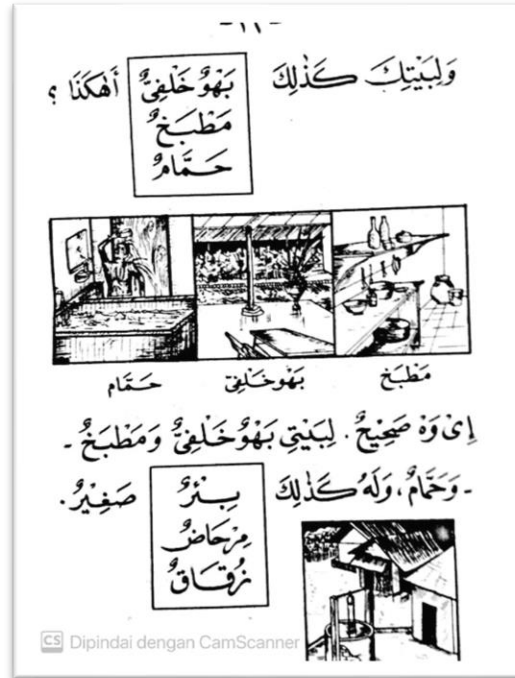 -١١-
وَلِبَيْتِكَ كَذٰلِكَ بَهْوٌ خَلْفِىٌّ أَهٰكَذَا ؟
مَطْبَخٌ
حَمَّامٌ
مَطْبَخ بَهْو خَلْفِىّ حَمَّام
إِىْ وَهْ صَحِيْحٌ. لِبَيْتِى بَهْوٌ خَلْفِىٌّ وَمَطْبَخٌ -
- وَحَمَّامٌ، وَلَهُ كَذٰلِكَ بِئْرٌ صَغِيْرٌ.
مِرْحَاضٌ
زُقَاقٌ
CS Dipindai dengan CamScanner